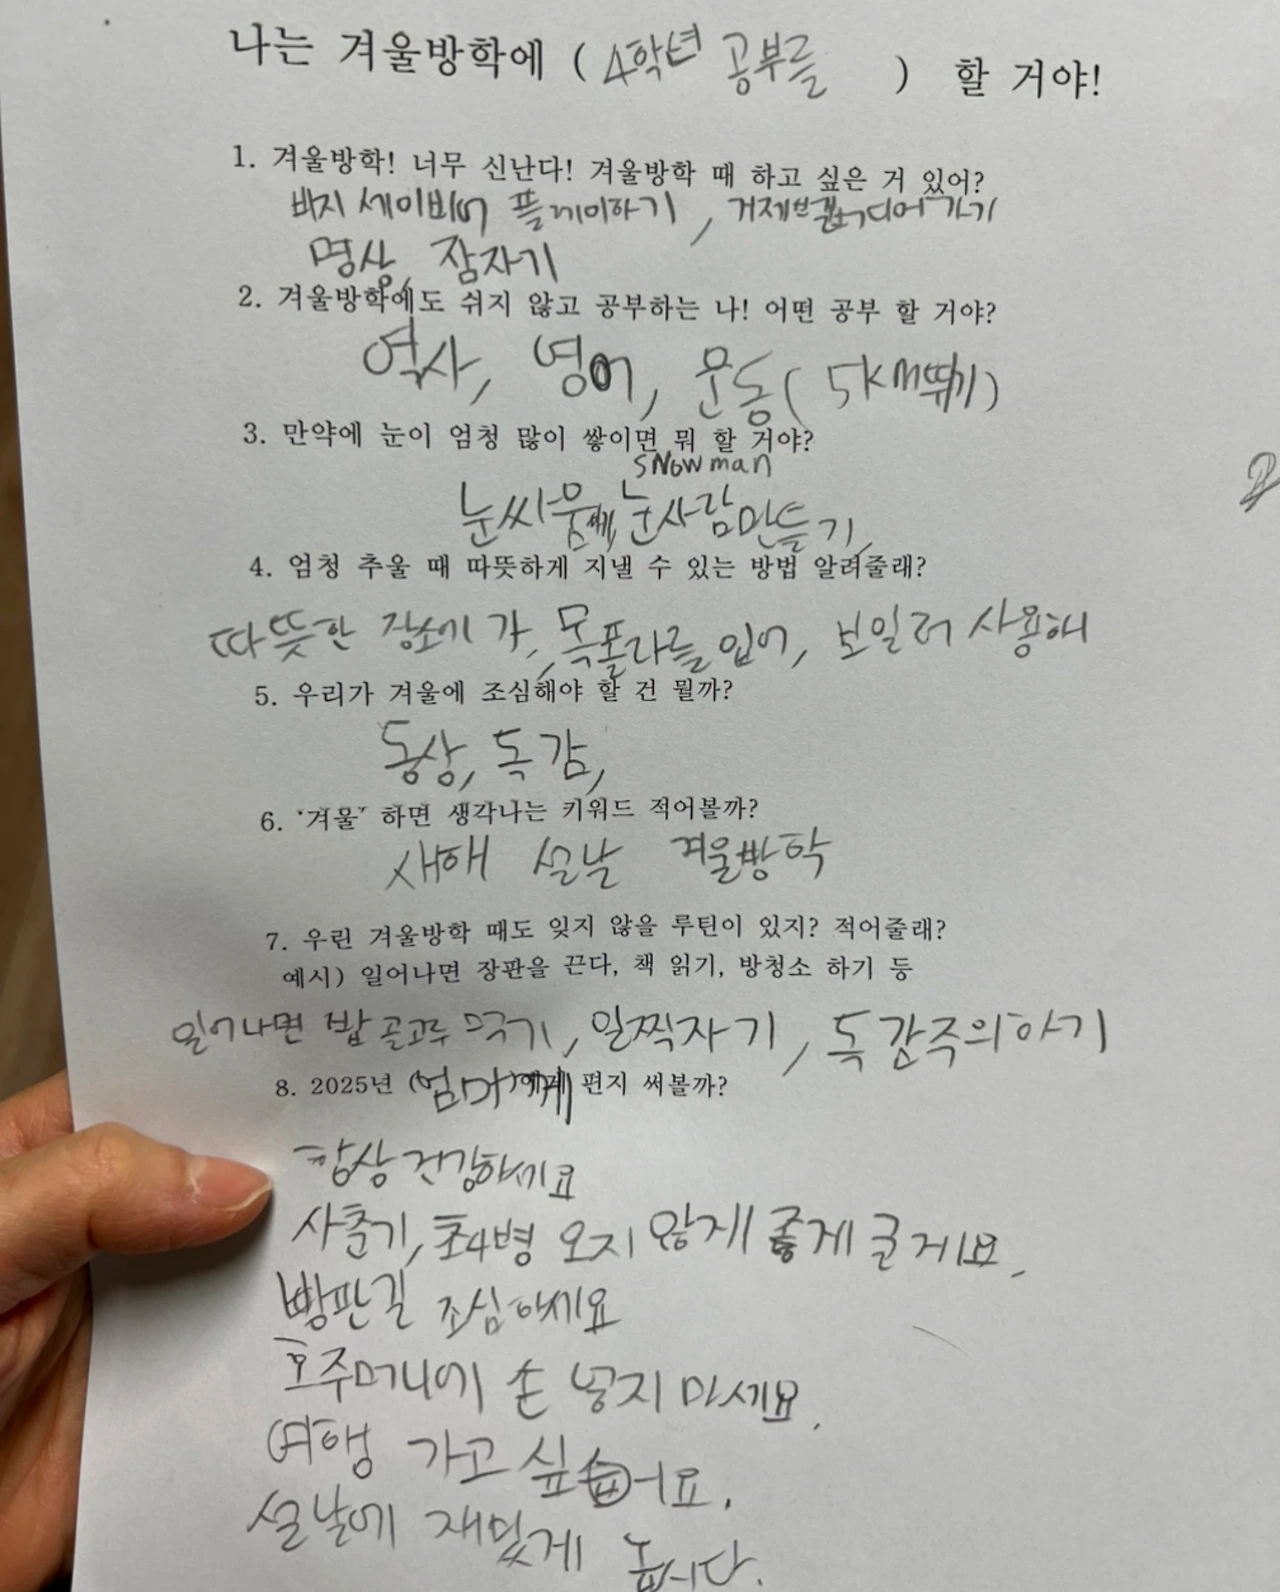 나는 겨울방학에 ( 4학년 공부를 ) 할 거야!
1. 겨울방학! 너무 신난다! 겨울방학 때 하고 싶은 거 있어?
바지 세이버 플레이하기, 거제 가기
명상, 잠자기
2. 겨울방학에도 쉬지 않고 공부하는 나! 어떤 공부 할 거야?
역사, 영어, 운동( 5km뛰기)
3. 만약에 눈이 엄청 많이 쌓이면 뭐 할 거야?
SNowman
눈싸움, 눈사람만들기,
4. 엄청 추울 때 따뜻하게 지낼 수 있는 방법 알려줄래?
따뜻한 장소에 가, 목폴라를 입어, 보일러 사용해
5. 우리가 겨울에 조심해야 할 건 뭘까?
동상, 독감,
6. '겨울' 하면 생각나는 키워드 적어볼까?
새해 설날 겨울방학
7. 우린 겨울방학 때도 잊지 않을 루틴이 있지? 적어줄래?
예시) 일어나면 장판을 끈다, 책 읽기, 방청소 하기 등
일어나면 밥 골고루 먹기, 일찍자기, 독감주의하기
8. 2025년 (엄마)에게 편지 써볼까?
항상 건강하세요
사춘기, 초4병 오지 않게 좋게 클게요.
빵판길 조심하세요
호주머니에 손 넣지 마세요.
여행 가고 싶어요.
설날에 재밌게 놉시다.